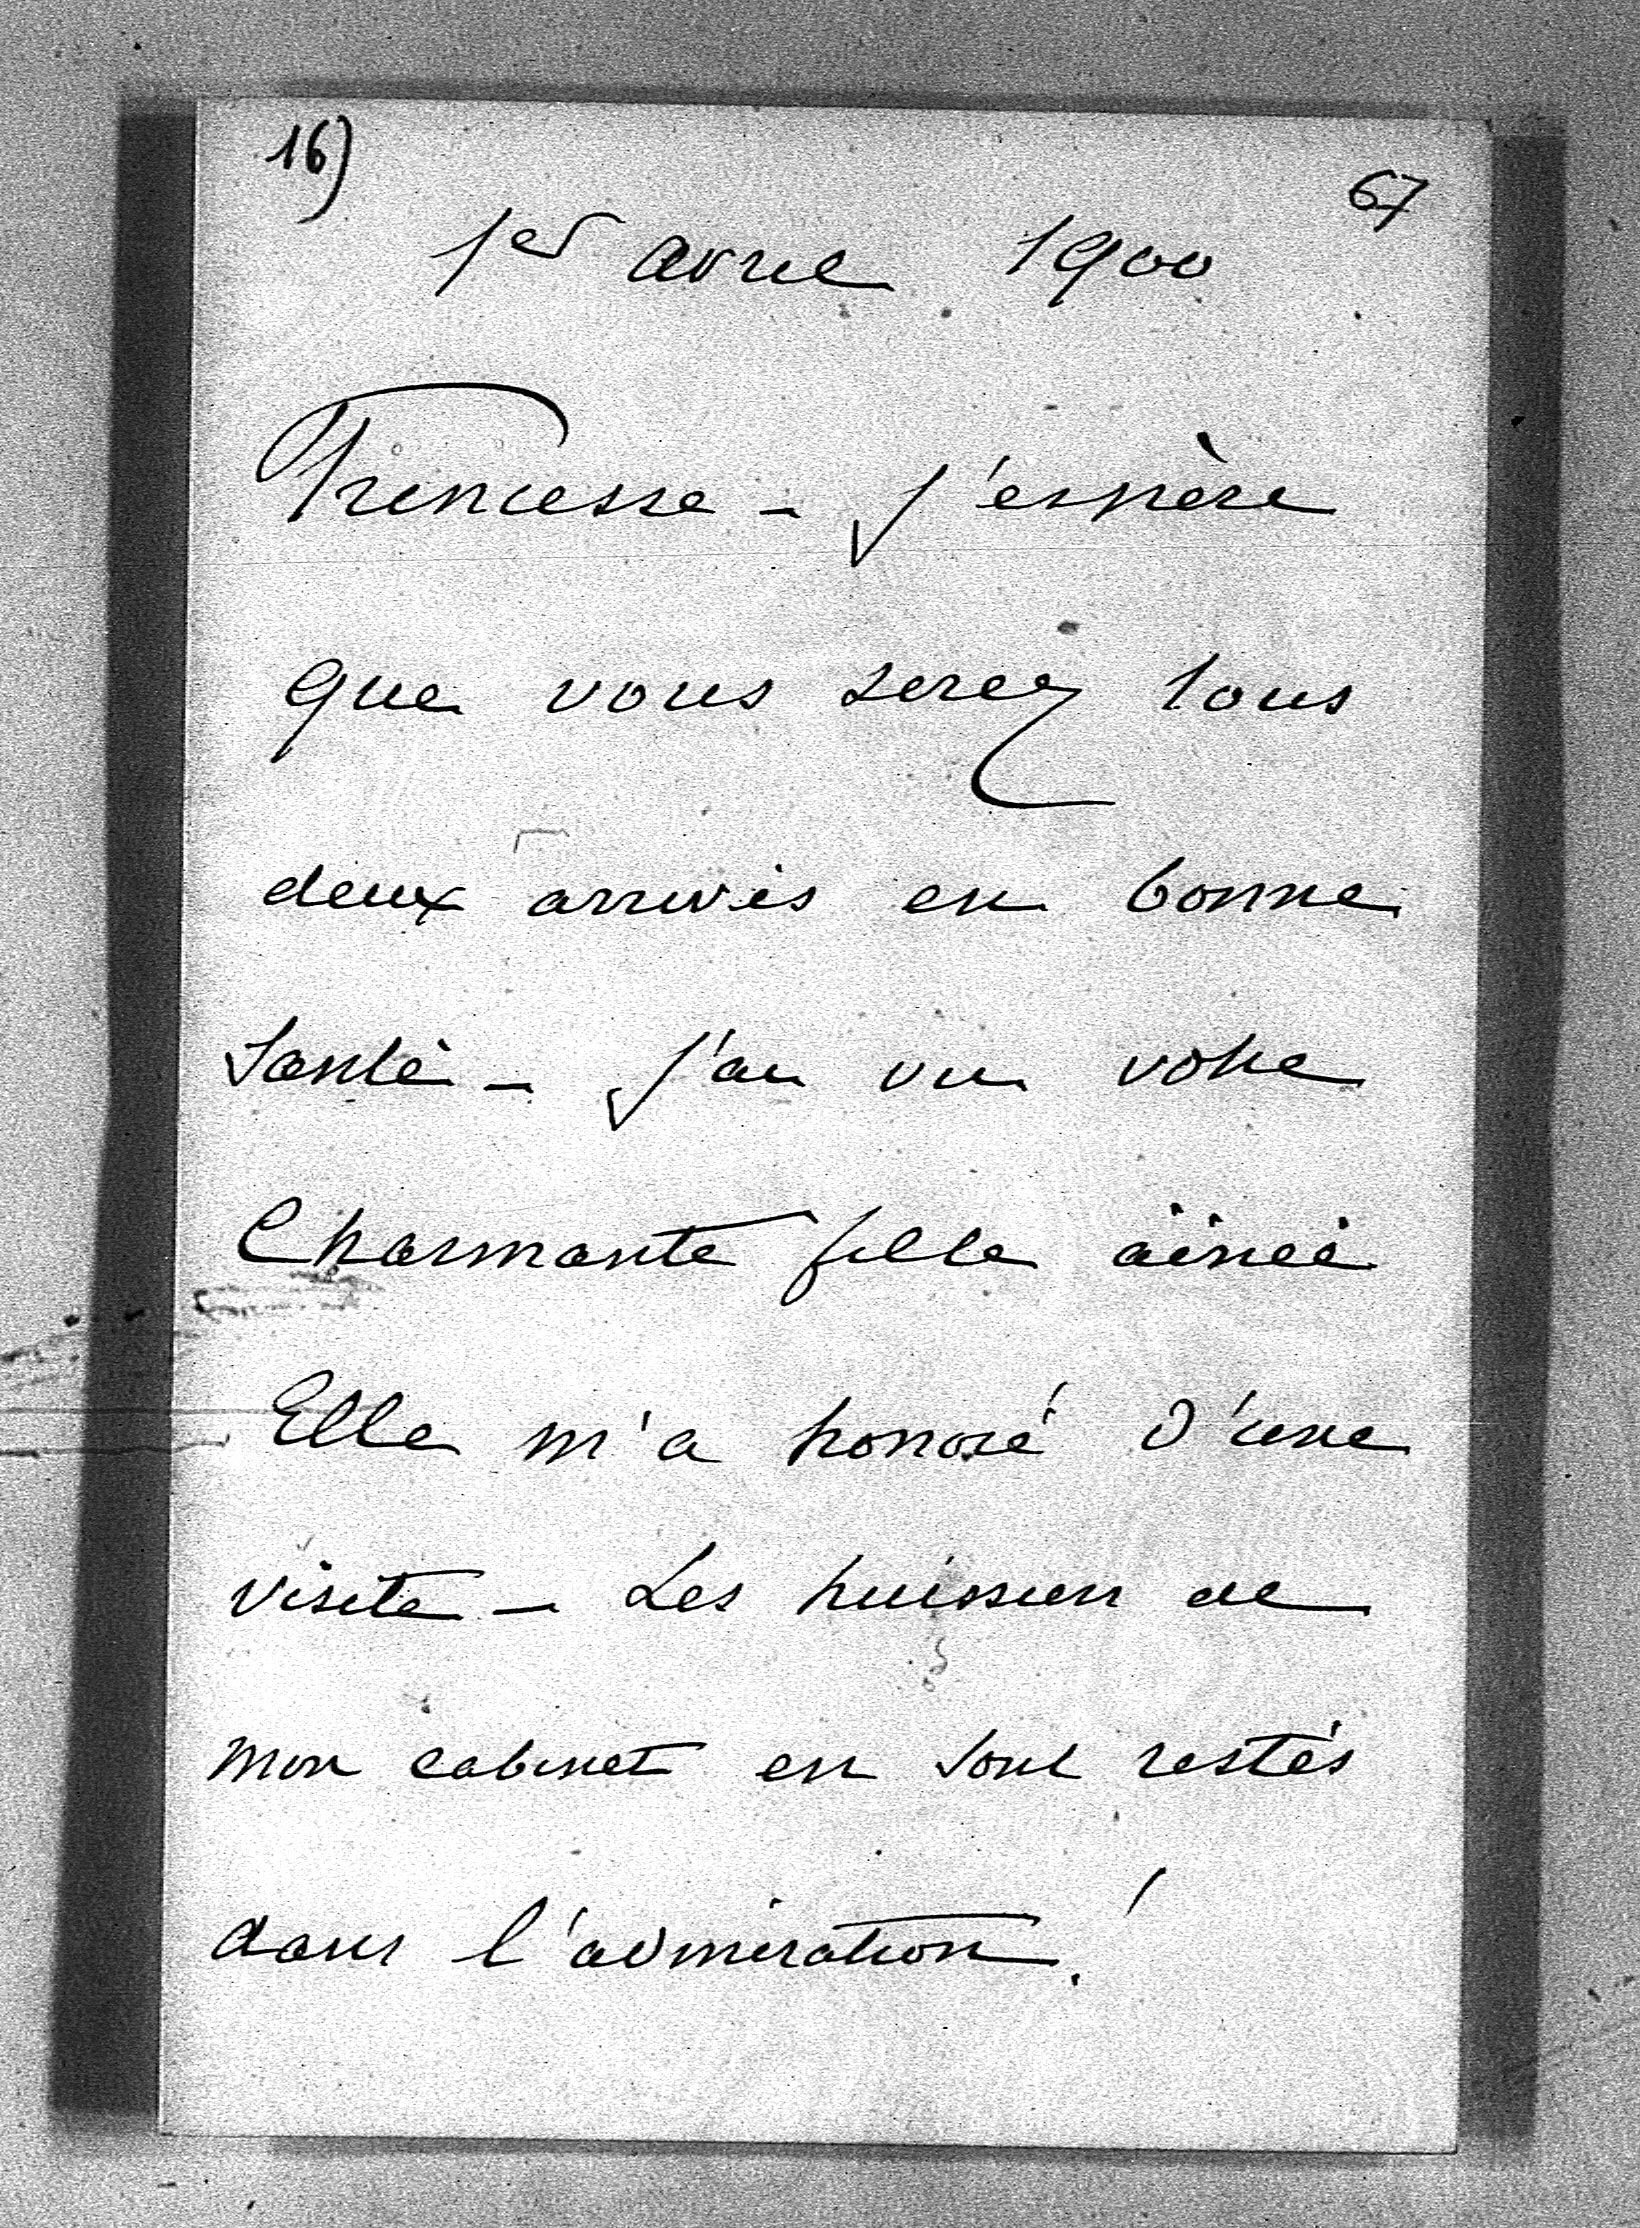 16)
67
1er avril 1900
Princesse - J'espère
que vous serez tous
deux arrivés en bonne
santé - J'ai vu votre
Charmante fille ainée
Elle m'a honoré d'une
visite - Les huissiers de
mon cabinet en sont restés
dans l'admiration!